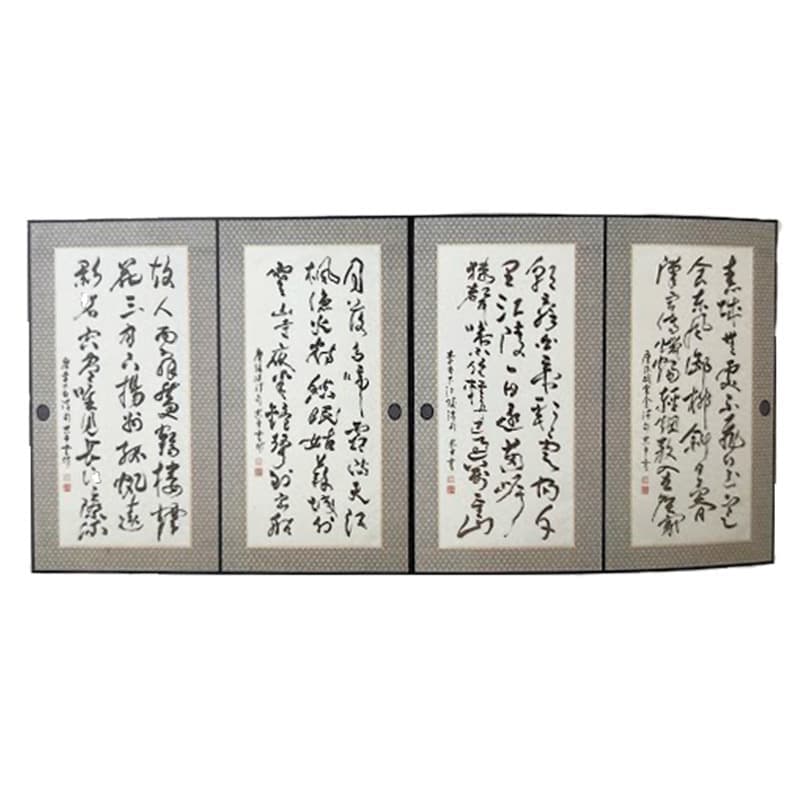 春城無處不飛花寒
食东風御柳斜日暮
漢宮傳蠟燭輕烟散入五侯家
朝辭白帝彩雲間千
里江陵一日還兩岸
猿聲啼不住輕舟已過萬重山
月落烏啼霜滿天江
楓漁火對愁眠姑蘇城外
寒山寺夜半鐘聲到客船
故人西辭黃鶴樓煙
花三月下揚州孤帆遠
影碧空盡唯見長江天際流